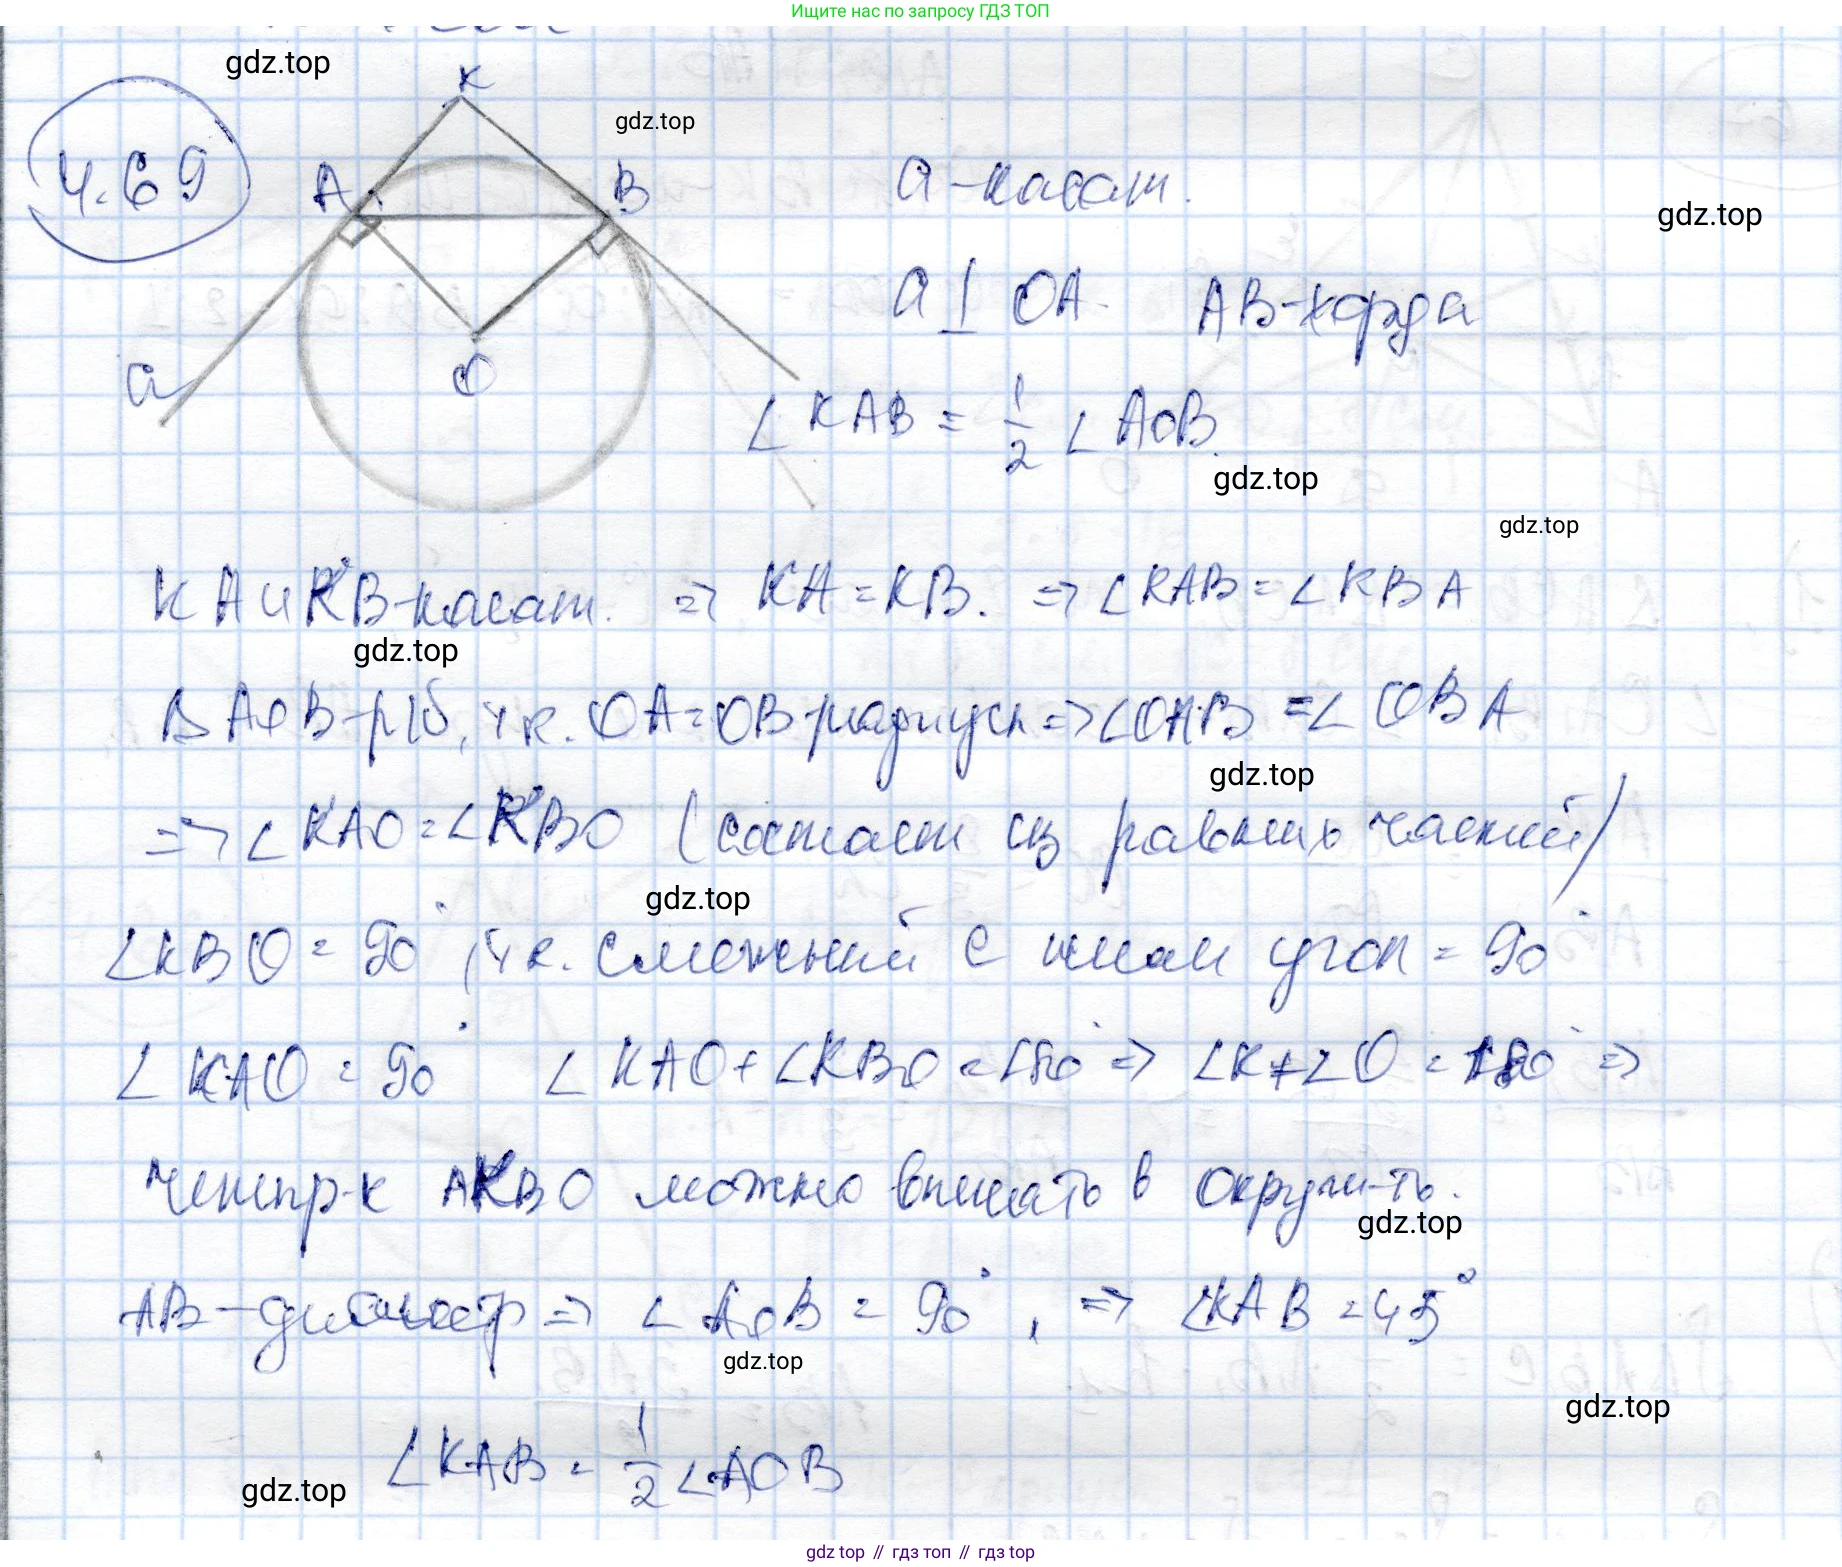 Ищите нас по запросу ГДЗ ТОП
gdz.top
K
gdz.top
4.69
A
B
a - касат.
gdz.top
a ⊥ OA AB - хорда
a
O
∠KAB = 1/2 ∠AOB.
gdz.top
gdz.top
KA и KB - касат. ⇒ KA = KB. ⇒ ∠KAB = ∠KBA
gdz.top
Δ AOB - р/б, т.к. OA = OB - радиусы ⇒ ∠OAB = ∠OBA
gdz.top
⇒ ∠KAO = ∠KBO (состоят из равных частей)
gdz.top
∠KBO = 90°, т.к. смежный с ним угол = 90°
∠KAO = 90° ∠KAO + ∠KBO = 180° ⇒ ∠K + ∠O = 180° ⇒
Четыр-к AKBO можно вписать в окружн-ть.
gdz.top
AB - диаметр ⇒ ∠AOB = 90°, ⇒ ∠KAB = 45°
gdz.top
gdz.top
∠KAB = 1/2 ∠AOB
gdz.top
gdz top // гдз топ // гдз top